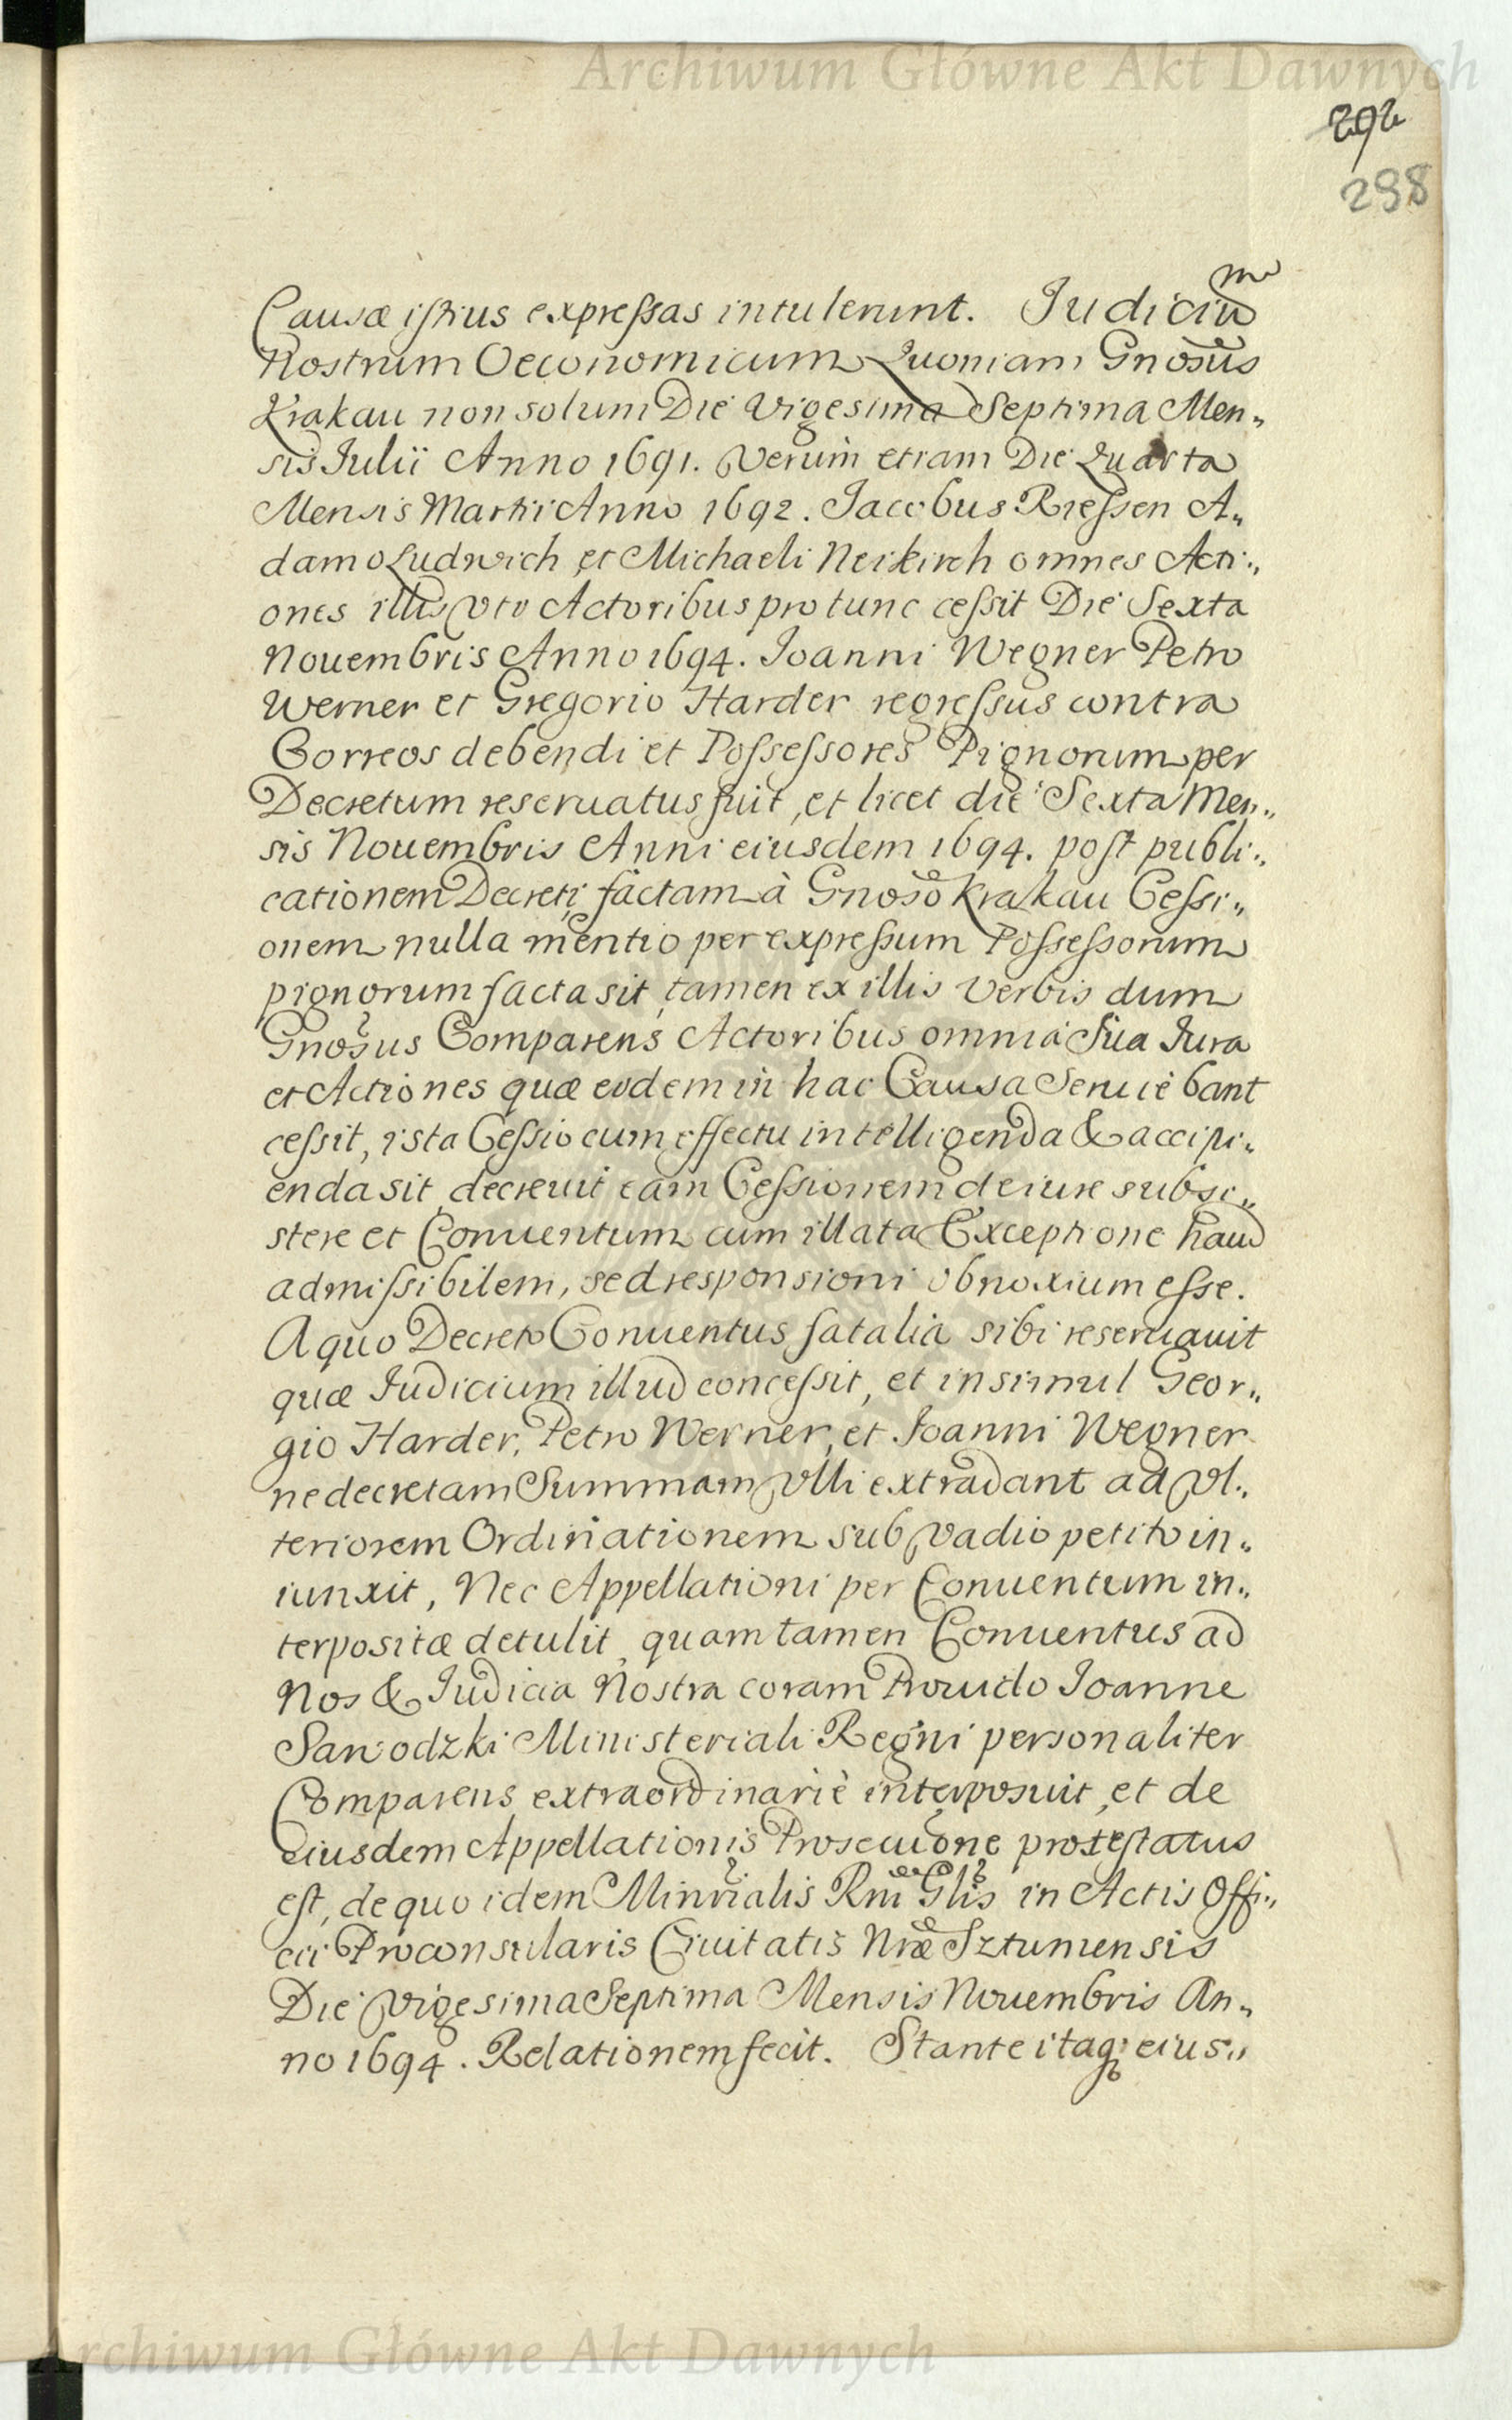 Archiwum Główne Akt Dawnych
292
298
Causæ istius expressas intulerunt. Judiciu᷉m
Nostrum Oeconomicum Quoniam Gnosus
Krakau non solum Die Vigesima Septima Men„
sis Julii Anno 1691. Verum etiam Die Quarta
Mensis Martii Anno 1692. Jacobus Riessen A„
damo Ludwich et Michaeli Neikirch omnes Acti„
ones illis vtv Actoribus pro tunc cessit Die Sexta
Nouembris Anno 1694. Joanni Wegner Petro
Werner et Gregorio Harder regressus contra
Correos debendi et Possessores Pignorum per
Decretum reseruatus fuit, et licet die Sexta Men„
sis Nouembris Anni eiusdem 1694. post publi„
cationem Decreti factam à Gnoso Krakau Cessi„
onem nulla mentio per expressum Possessorum
pignorum facta sit, tamen ex illis Verbis dum
Gnosus Comparens Actoribus omnia Sua Jura
et Actiones quæ eodem in hac Causa Seruiebant
cessit, ista Cessio cum effectu intelligenda & accipi„
enda sit, decreuit eam Cessionem de iure subsi„
stere et Conuentum cum illata Exceptione haud
admissibilem, sed responsioni obnoxium esse.
A quo Decreto Conuentus fatalia sibi reseruauit
quæ Judicium illud concessit, et insimul Geor„
gio Harder, Petro Werner, et Joanni Wegner
ne decretam Summam vlli extradant ad vl„
teriorem Ordinationem sub vadio petito in„
iunxit, Nec Appellationi per Conuentum in„
terpositæ detulit, quam tamen Conuentus ad
Nos & Judicia Nostra coram Prouido Joanne
Sawodzki Ministeriali Regni personaliter
Comparens extraordinariè interposuit, et de
eiusdem Appellationis Prosecuone protestatus
est, de quo idem Minrialis Rni Glis in Actis Offi„
cii Proconsularis Ciuitatis Nræ Sztumensis
Die Vigesima Septima Mensis Nouembris An„
no 1694. Relationem fecit. Stante itaq; eius„
Archiwum Główne Akt Dawnych